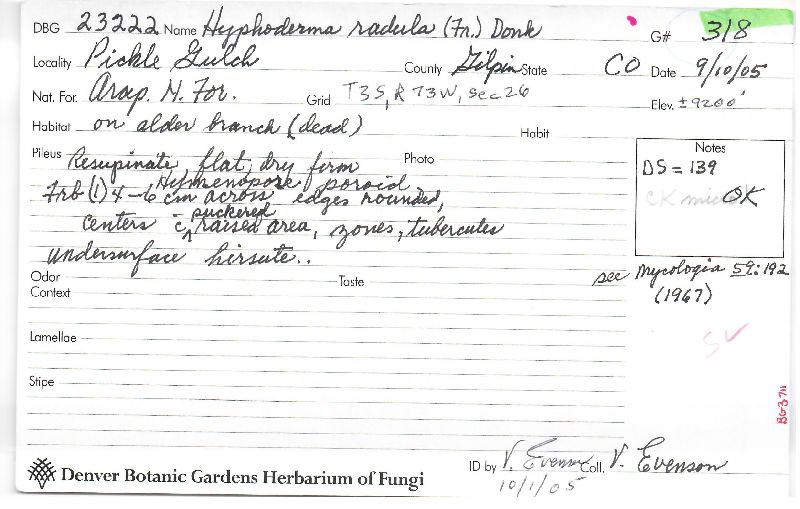 DBG 23222 Name Hyphoderma radula (Fr.) Donk G# 318
Locality Pickle Gulch County Gilpin State CO Date 9/10/05
Nat. For. Arap. N. For. Grid T3S, R 73W, sec 26 Elev. ±9200'
Habitat on alder branch (dead) Habit
Pileus Resupinate, flat, dry firm Photo
Hymenopore poroid
Frb (1) 4-6 cm across edges rounded,
puckered
centers c̄ raised area, zones, tubercules
undersurface hirsute..
Notes
DS = 139
CK micro OK
see Mycologia 59:192
(1967)
Odor Taste
Context
Lamellae
Stipe
BG3711
Denver Botanic Gardens Herbarium of Fungi
ID by V. Evenson Coll. V. Evenson
10/1/05